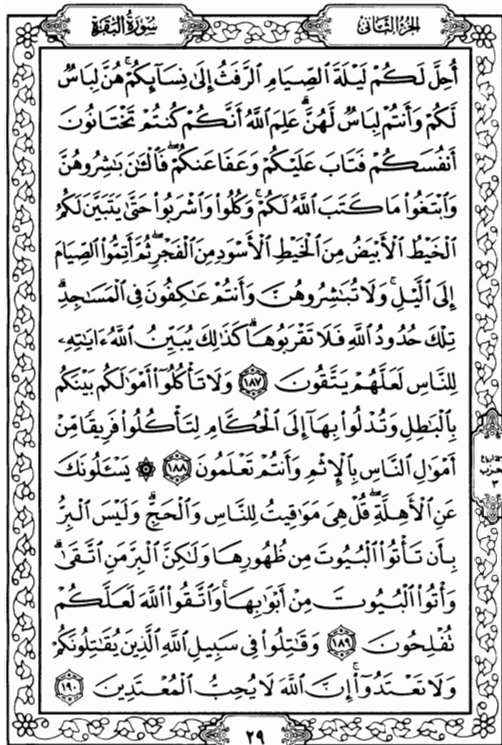 سُورَةُ البَقَرَةِ
الجُزْءُ الثَّانِي
أُحِلَّ لَكُمْ لَيْلَةَ الصِّيَامِ الرَّفَثُ إِلَىٰ نِسَآئِكُمْ ۚ هُنَّ لِبَاسٌ
لَّكُمْ وَأَنتُمْ لِبَاسٌ لَّهُنَّ ۗ عَلِمَ اللَّهُ أَنَّكُمْ كُنتُمْ تَخْتَانُونَ
أَنفُسَكُمْ فَتَابَ عَلَيْكُمْ وَعَفَا عَنكُمْ ۖ فَالْـَٰٔنَ بَٰشِرُوهُنَّ
وَابْتَغُوا۟ مَا كَتَبَ اللَّهُ لَكُمْ ۚ وَكُلُوا۟ وَاشْرَبُوا۟ حَتَّىٰ يَتَبَيَّنَ لَكُمُ
الْخَيْطُ الْأَبْيَضُ مِنَ الْخَيْطِ الْأَسْوَدِ مِنَ الْفَجْرِ ۖ ثُمَّ أَتِمُّوا۟ الصِّيَامَ
إِلَى الَّيْلِ ۚ وَلَا تُبَٰشِرُوهُنَّ وَأَنتُمْ عَٰكِفُونَ فِي الْمَسَٰجِدِ ۗ
تِلْكَ حُدُودُ اللَّهِ فَلَا تَقْرَبُوهَا ۗ كَذَٰلِكَ يُبَيِّنُ اللَّهُ ءَايَٰتِهِۦ
لِلنَّاسِ لَعَلَّهُمْ يَتَّقُونَ ١٨٧ وَلَا تَأْكُلُوٓا۟ أَمْوَٰلَكُم بَيْنَكُم
بِالْبَٰطِلِ وَتُدْلُوا۟ بِهَآ إِلَى الْحُكَّامِ لِتَأْكُلُوا۟ فَرِيقًا مِّنْ
أَمْوَٰلِ النَّاسِ بِالْإِثْمِ وَأَنتُمْ تَعْلَمُونَ ١٨٨ ۞ يَسْـَٔلُونَكَ
عَنِ الْأَهِلَّةِ ۖ قُلْ هِيَ مَوَٰقِيتُ لِلنَّاسِ وَالْحَجِّ ۗ وَلَيْسَ الْبِرُّ
بِأَن تَأْتُوا۟ الْبُيُوتَ مِن ظُهُورِهَا وَلَٰكِنَّ الْبِرَّ مَنِ اتَّقَىٰ ۗ
وَأْتُوا۟ الْبُيُوتَ مِنْ أَبْوَٰبِهَا ۚ وَاتَّقُوا۟ اللَّهَ لَعَلَّكُمْ
تُفْلِحُونَ ١٨٩ وَقَٰتِلُوا۟ فِي سَبِيلِ اللَّهِ الَّذِينَ يُقَٰتِلُونَكُمْ
وَلَا تَعْتَدُوٓا۟ ۚ إِنَّ اللَّهَ لَا يُحِبُّ الْمُعْتَدِينَ ١٩٠
حزب
٣
٢٩